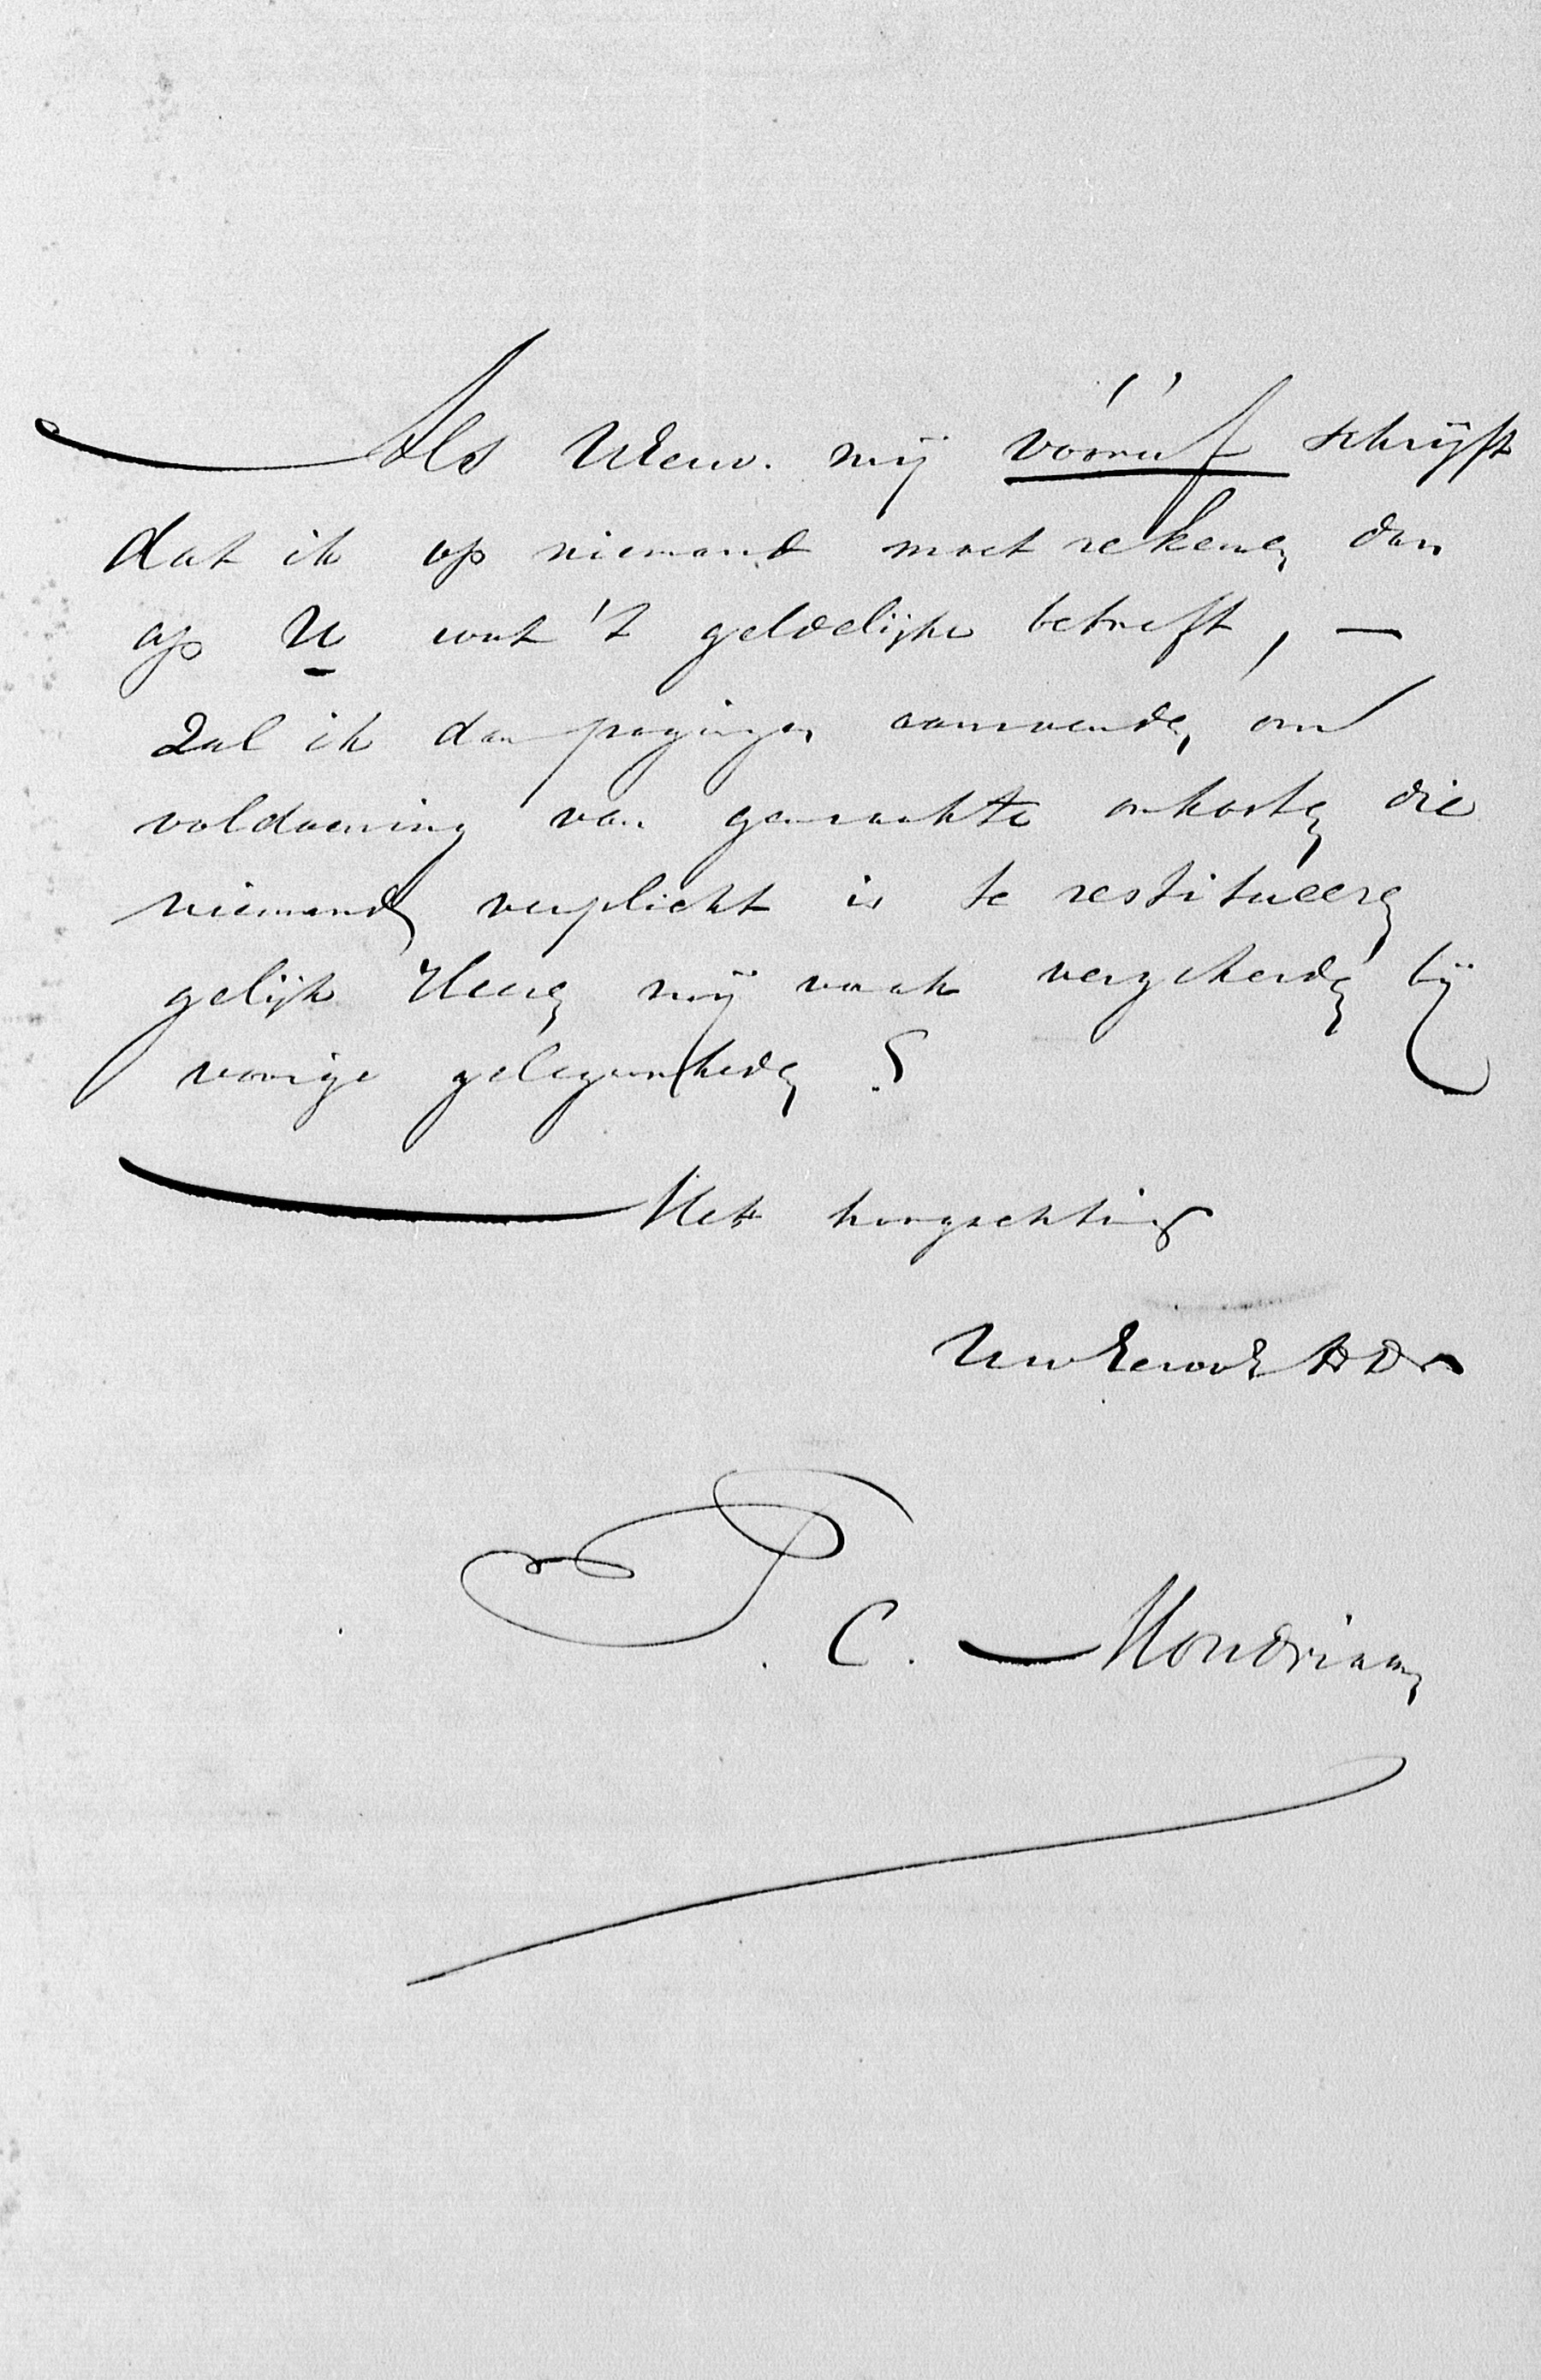 Als UEerw. mij vóóraf schrijft
dat ik op niemand moet rekenen dan
op U wat 't geldelijke betreft, —
Zal ik dan pogingen aanwenden om
voldoening van gemaakte onkosten die
niemand verplicht is te restitueeren
gelijk Heeren mij vaak verzekerden bij
vorige gelegenheden?
Met hoogachting
P. C. Mondriaan